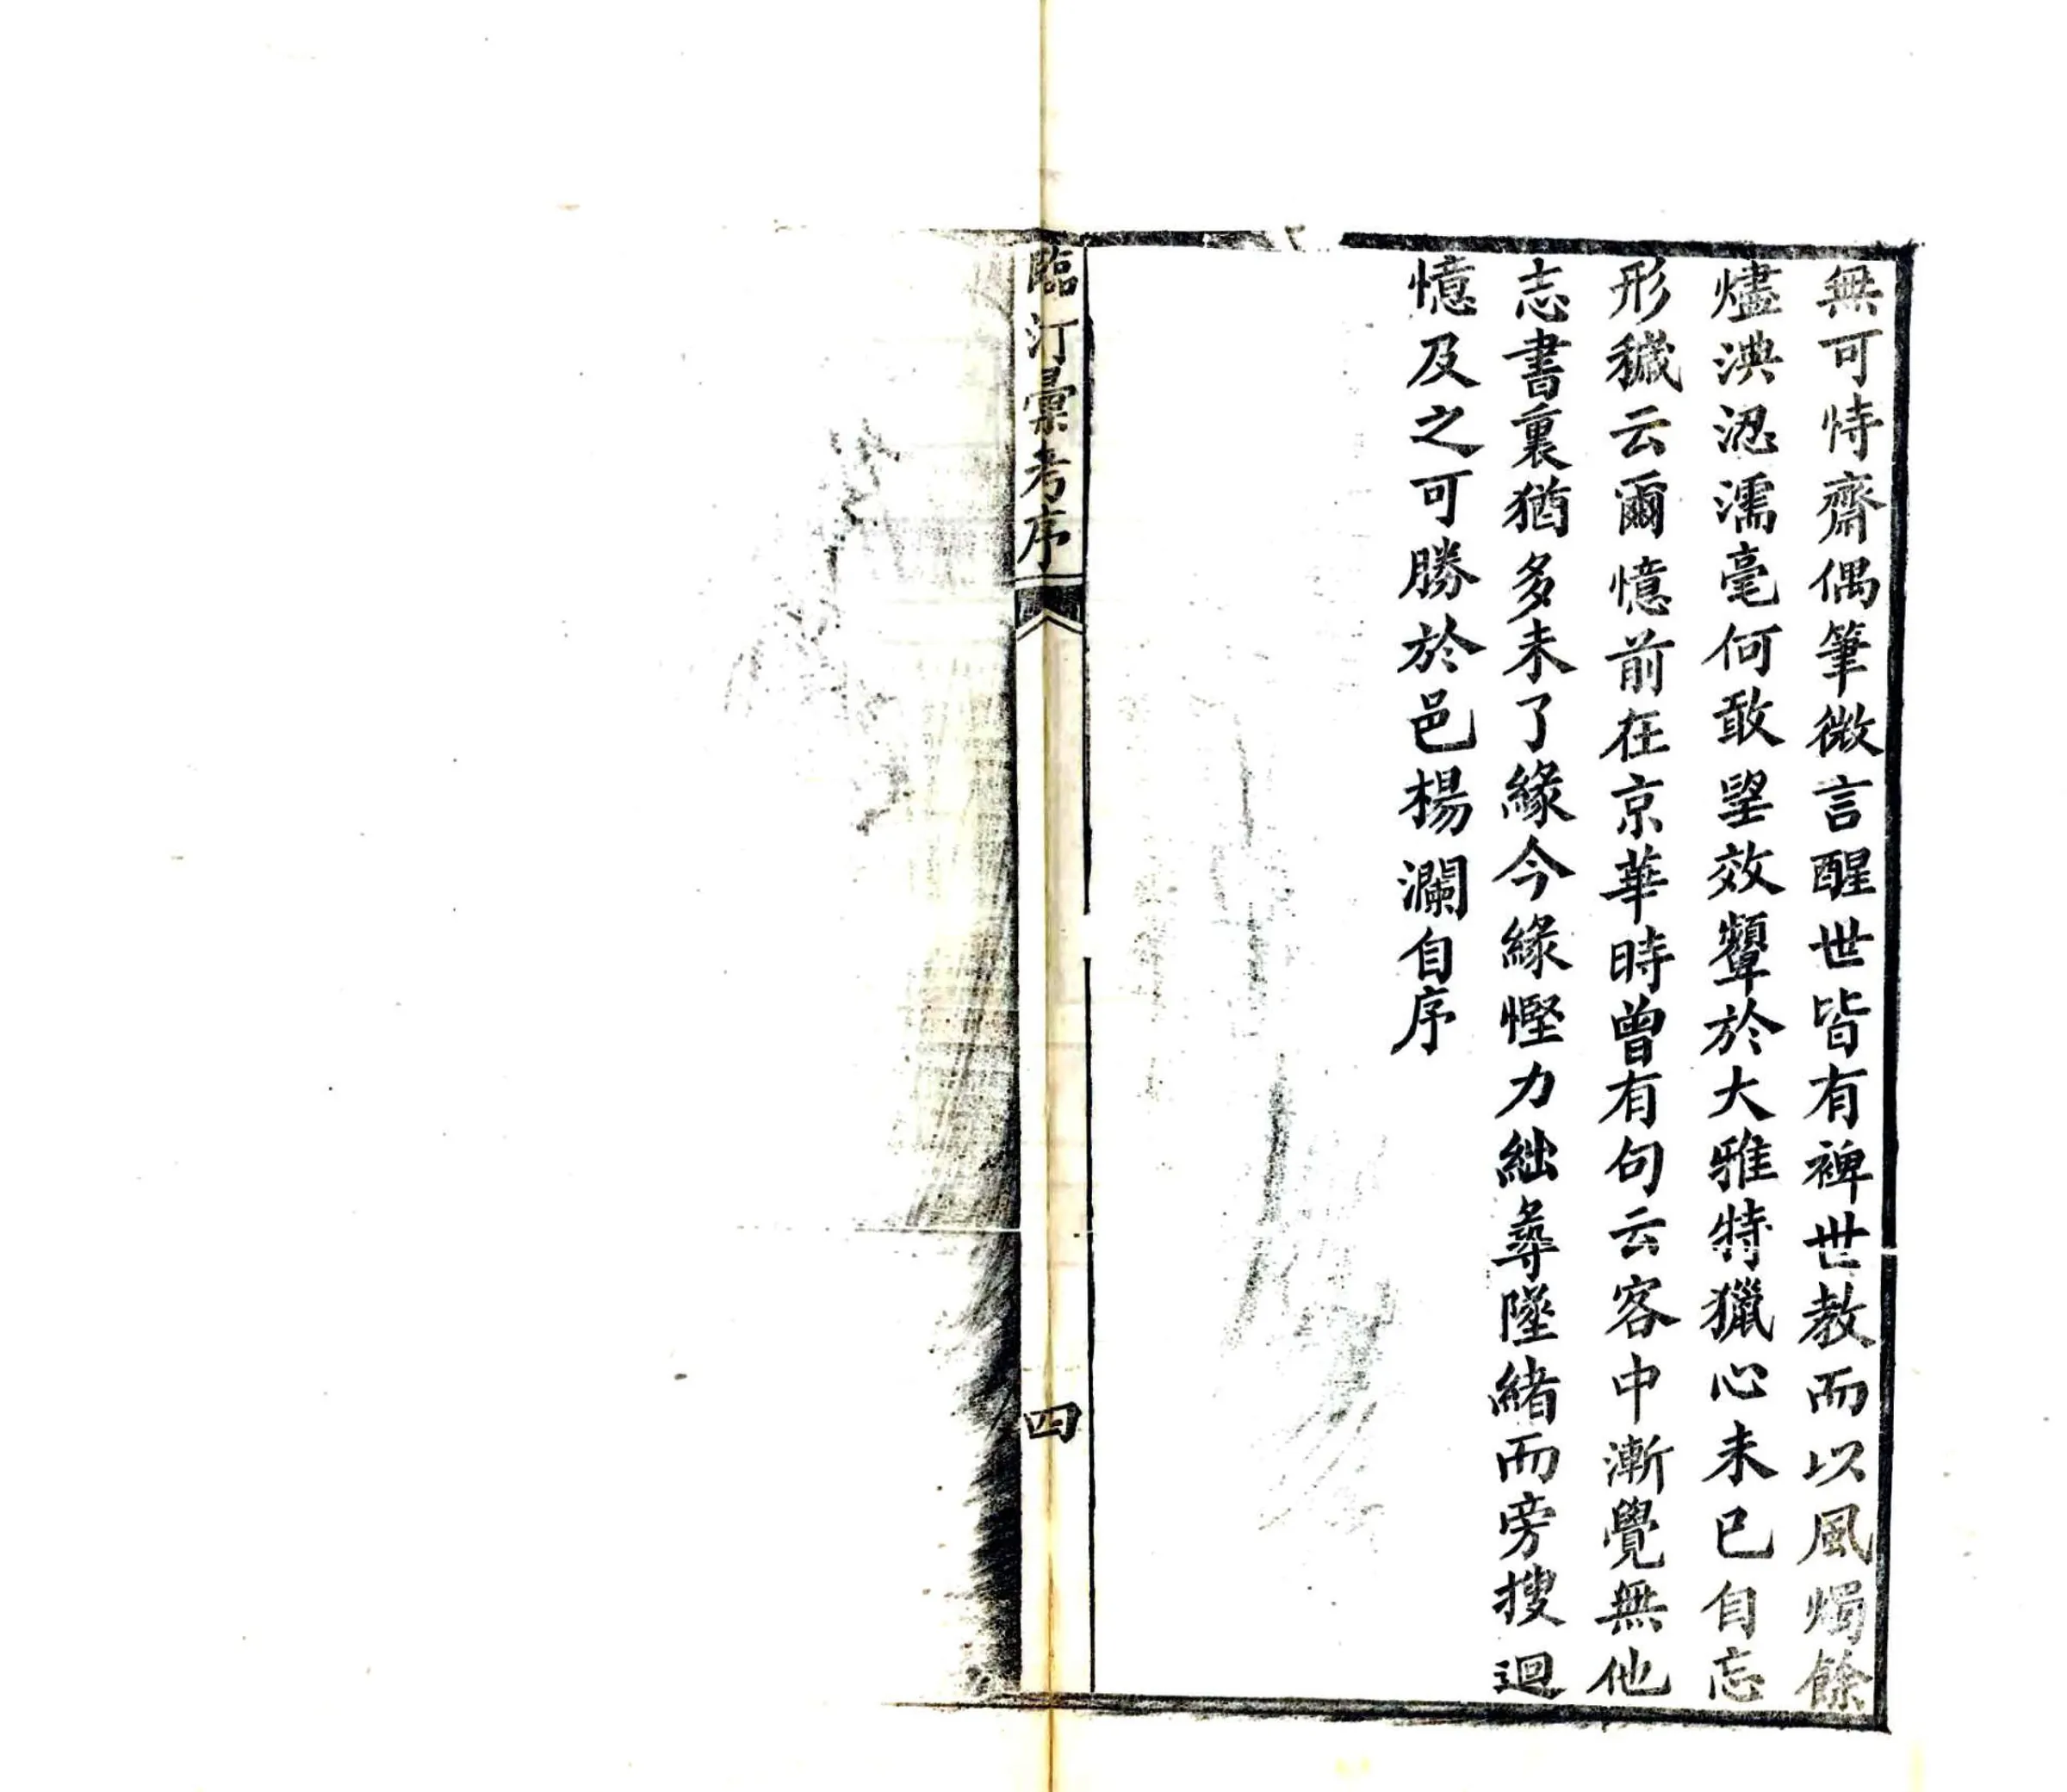 無可恃齋偶筆微言醒世皆有裨世教而以風燭餘
燼淟涊濡毫何敢望效顰於大雅特獵心未已自忘
形穢云爾憶前在京華時曾有句云客中漸覺無他
志書裏猶多未了緣今緣慳力絀尋墜緒而旁搜迴
憶及之可勝於邑楊瀾自序
臨汀彙考序
四